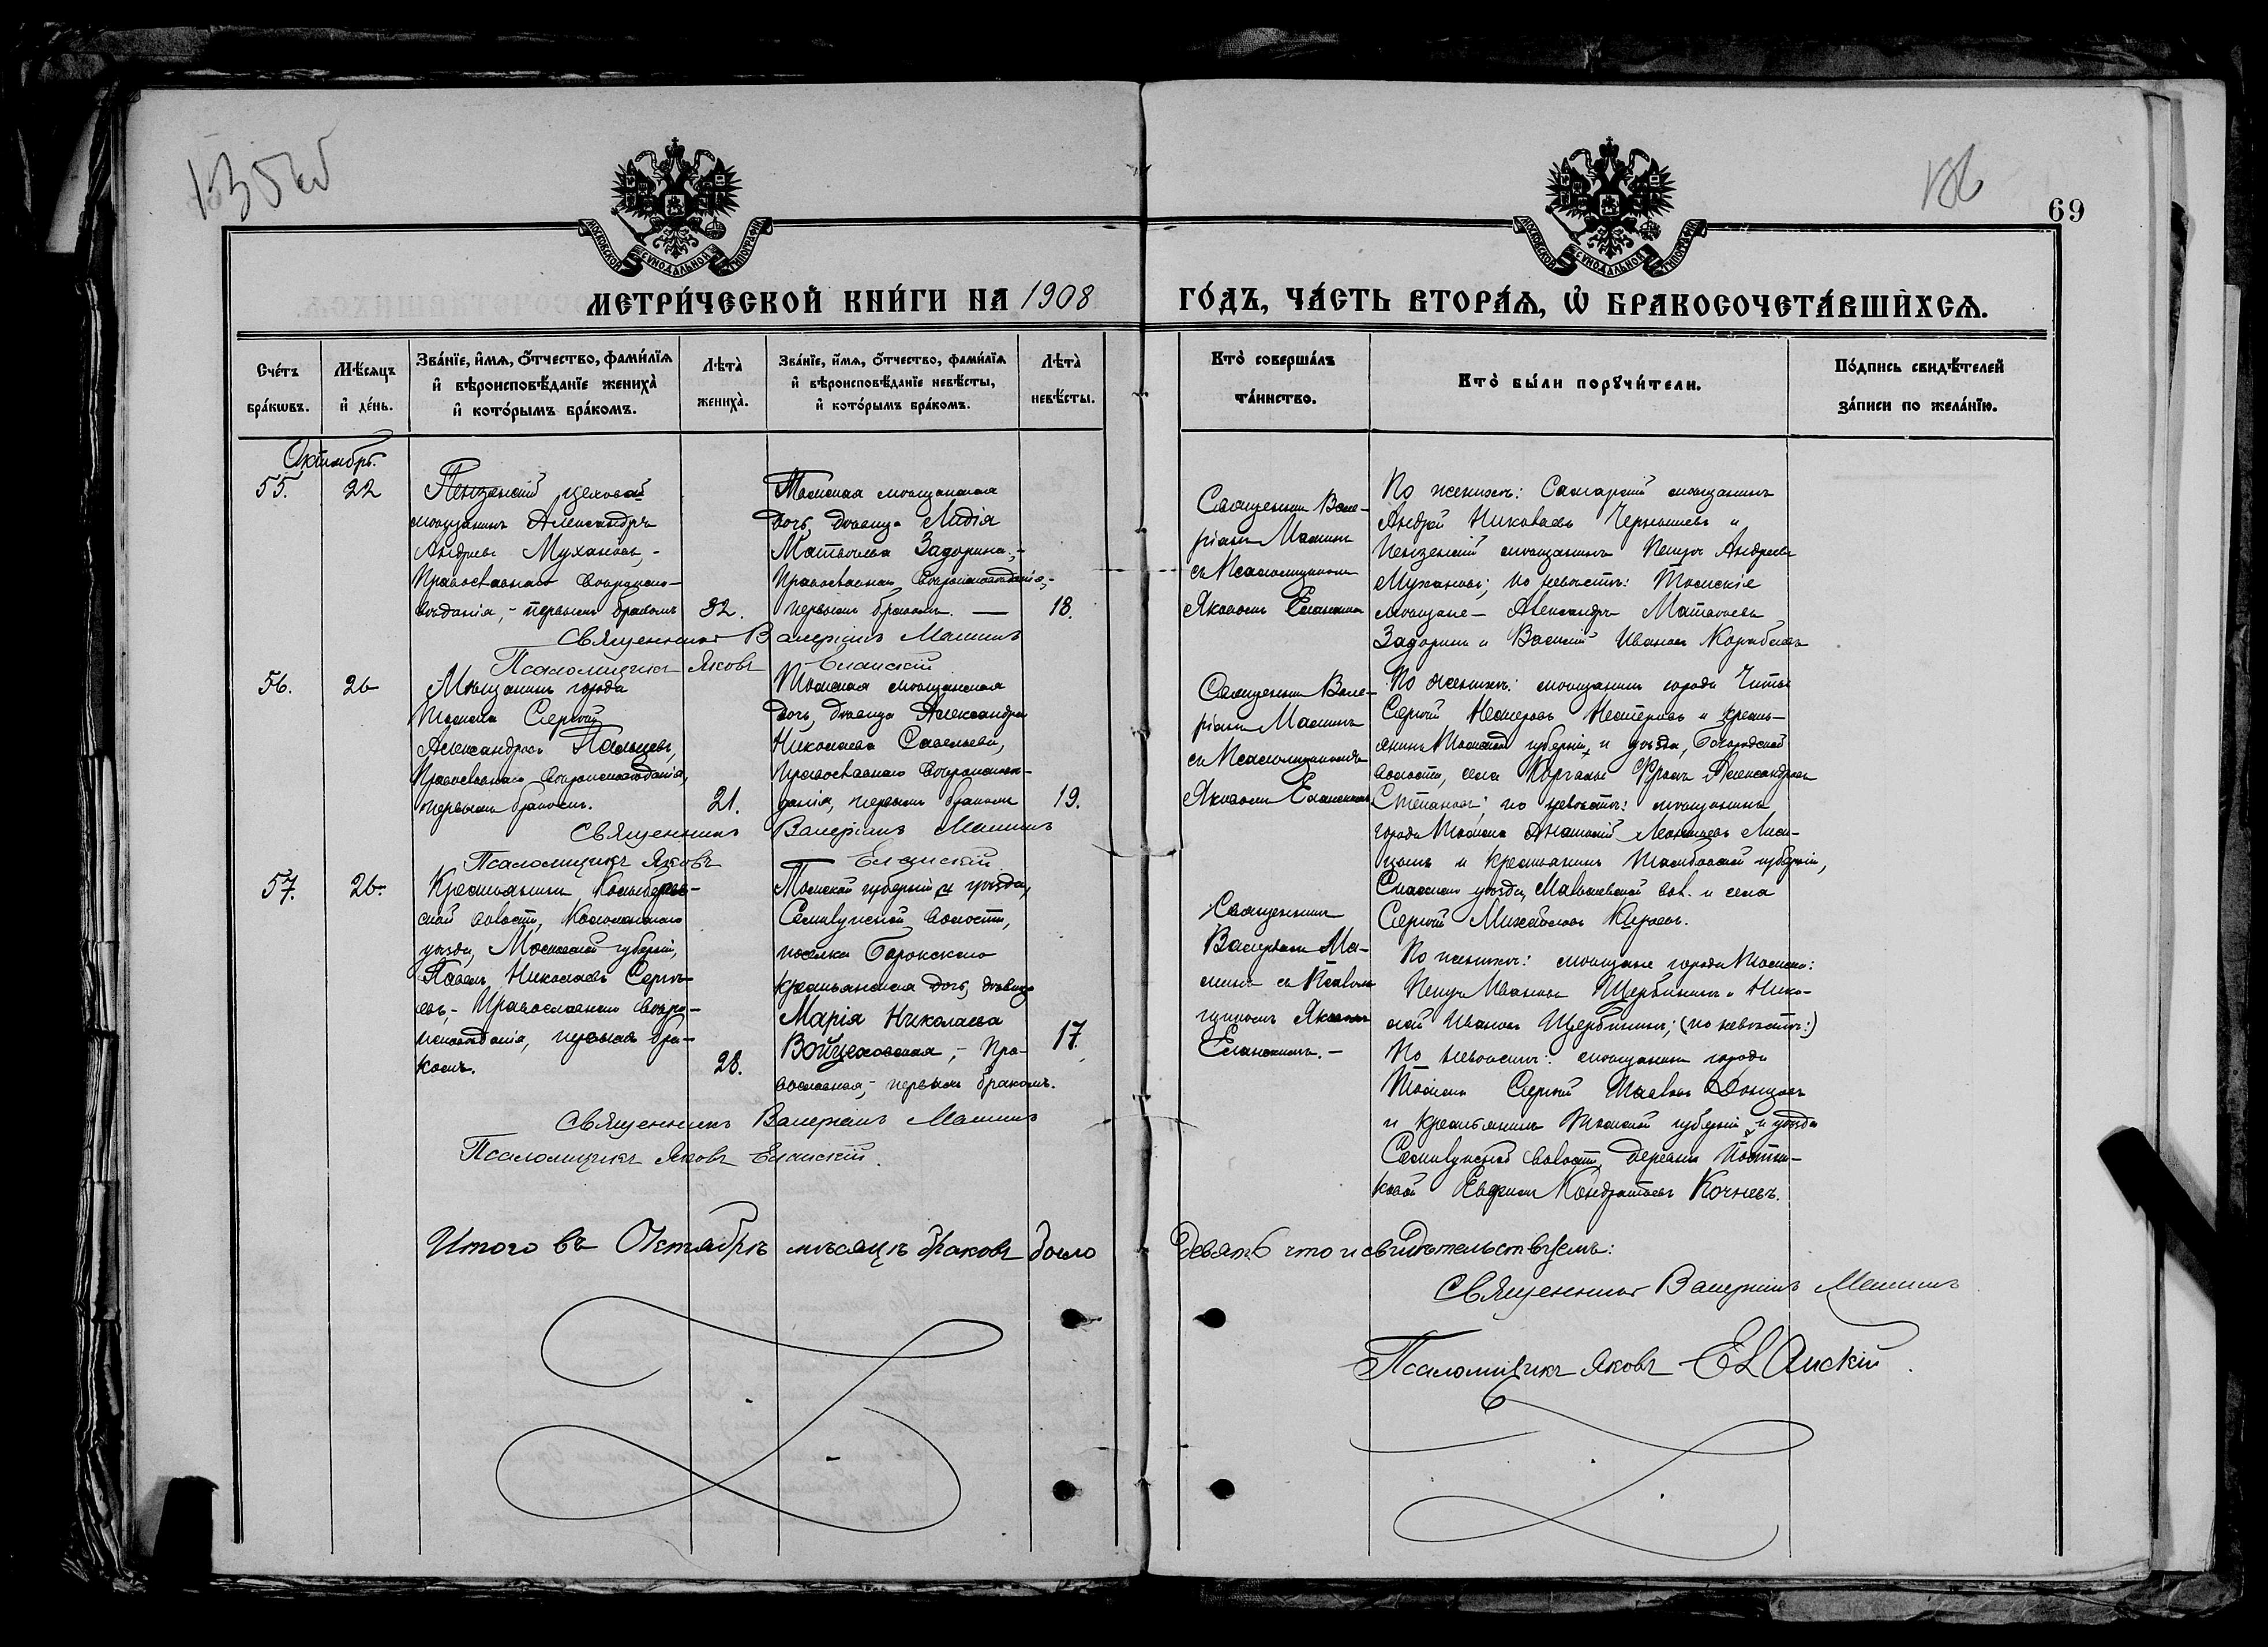 135 об
186
69
МОСКОВСКОЙ СУНОДАЛЬНОЙ ТИПОГРАФІИ
МОСКОВСКОЙ СУНОДАЛЬНОЙ ТИПОГРАФІИ
МЕТРИ́ЧЕСКОЙ КНИ́ГИ НА 1908 ГО́ДЪ, ЧА́СТЬ ВТОРА́Ѧ, Ѽ БРАКОСОЧЕТА́ВШИХСѦ.
Сче́тъ бра́кѡвъ.
Мѣ́сяцъ и де́нь.
Зва́нїе, и́мѧ, о́тчество, фами́лїѧ
и вѣроисповѣ́данїе жениха̀
и кото́рымъ бра́комъ.
Лѣта̀ жениха̀.
Зва́нїе, и́мѧ, о́тчество, фами́лїѧ
и вѣроисповѣ́данїе невѣ́сты,
и кото́рымъ бра́комъ.
Лѣта̀ невѣ́сты.
Кто̀ соверша́лъ
та́инство.
Кто̀ бы́ли порꙋчи́тели.
По́дпись свидѣ́телей
за́писи по жела́нїю.
Октябрь.
55.
22
Пензенскій цеховой
мѣщанинъ Александръ
Андреевъ Мухановъ,-
Православнаго вѣроиспо-
вѣданія,- первымъ бракомъ
32.
Томская мѣщанская
дочь, дѣвица Лидія
Матвѣева Задорина,-
Православнаго вѣроисповѣданія,-
первымъ бракомъ. —
18.
Священникъ Вале-
ріанъ Маминъ
съ Псаломщикомъ
Яковомъ Еланскимъ
По женихѣ: Самарскій мѣщанинъ
Андрей Николаевъ Чернышевъ и
Пензенскій мѣщанинъ Петръ Андреевъ
Мухановъ; по невѣстѣ: Томскіе
мѣщане- Александръ Матвѣевъ
Задоринъ и Василій Ивановъ
Священникъ Валеріанъ Маминъ
Псаломщикъ Яковъ Еланскій
56.
26
Мѣщанинъ города
Томска Сергѣй
Александровъ Пальцевъ,
Православнаго вѣроисповѣданія,
первымъ бракомъ.
21.
Томская мѣщанская
дочь, дѣвица Александра
Николаева Савельева,
православнаго вѣроисповѣ-
данія, первымъ бракомъ
19.
Священникъ Вале-
ріанъ Маминъ
съ Псаломщикомъ
Яковомъ Еланскимъ
По женихѣ: мѣщанинъ города Читы
Сергѣй Нестеровъ Нестеровъ и кресть-
янинъ Томской губерніи и уѣзда, Богородской
волости, села Александровъ
Степановъ; по невѣстѣ: мѣщанинъ
города Томска
и крестьянинъ Тамбовской губерніи,
Спасскаго уѣзда, вол. и села
Сергѣй Михайловъ
Священникъ Валеріанъ Маминъ
Псаломщикъ Яковъ Еланскій
57.
26.
Крестьянинъ
ской волости, Коломенскаго
уѣзда, Московской губерніи,
Павелъ Николаевъ Сергѣ-
евъ,- Православнаго вѣро-
исповѣданія, первымъ бра-
комъ.
28.
Томской губерніи и уѣзда,
Семилужской волости,
поселка Боронскаго
крестьянская дочь, дѣвица
Марія Николаева
Войцеховская,- Пра-
вославная,- первымъ бракомъ.
17.
Священникъ
Валеріанъ Ма-
минъ съ Псалом-
щикомъ Яковомъ
Еланскимъ.-
По женихѣ: мѣщане города Томска:
Петръ Ивановъ Щербининъ и Нико-
лай Ивановъ Щербининъ; (по невѣстѣ:)
По невѣстѣ: мѣщанинъ города
Томска Сергѣй
и крестьянинъ Томской губерніи и уѣзда
Семилужной волости, деревни
Кондратьевъ Кочневъ.
Священникъ Валеріанъ Маминъ
Псаломщикъ Яковъ Еланскій.
Итого въ Октябрѣ мѣсяцѣ браковъ было девять что и свидѣтельствуемъ:
Священникъ Валеріанъ Маминъ
Псаломщикъ Яковъ Еланскій.